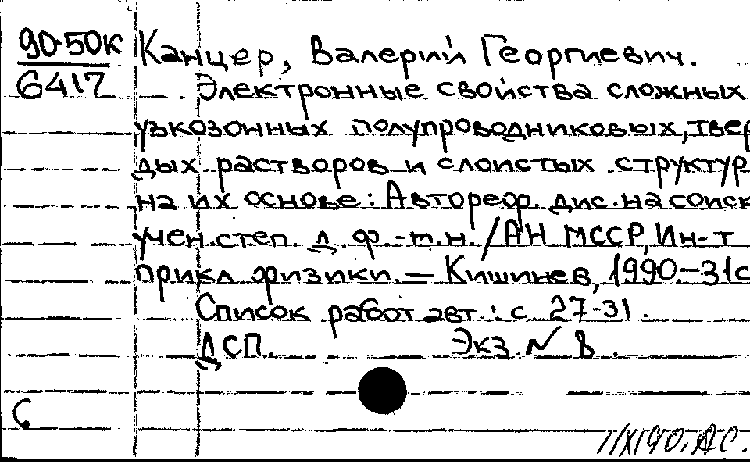 90-50к
6417
Канцер, Валерий Георгиевич.
Электронные свойства сложных
узкозонных полупроводниковых, твер
дых растворов и слоистых структур
на их основе: Автореф. дис. на соиск
учен. степ. д. ф.-м.н. / АН МССР, Ин-т
прикл. физики. — Кишинев, 1990.-31с
Список работ авт.: с. 27-31.
ДСП. Экз. № 8.
С
1/XI90. АС.